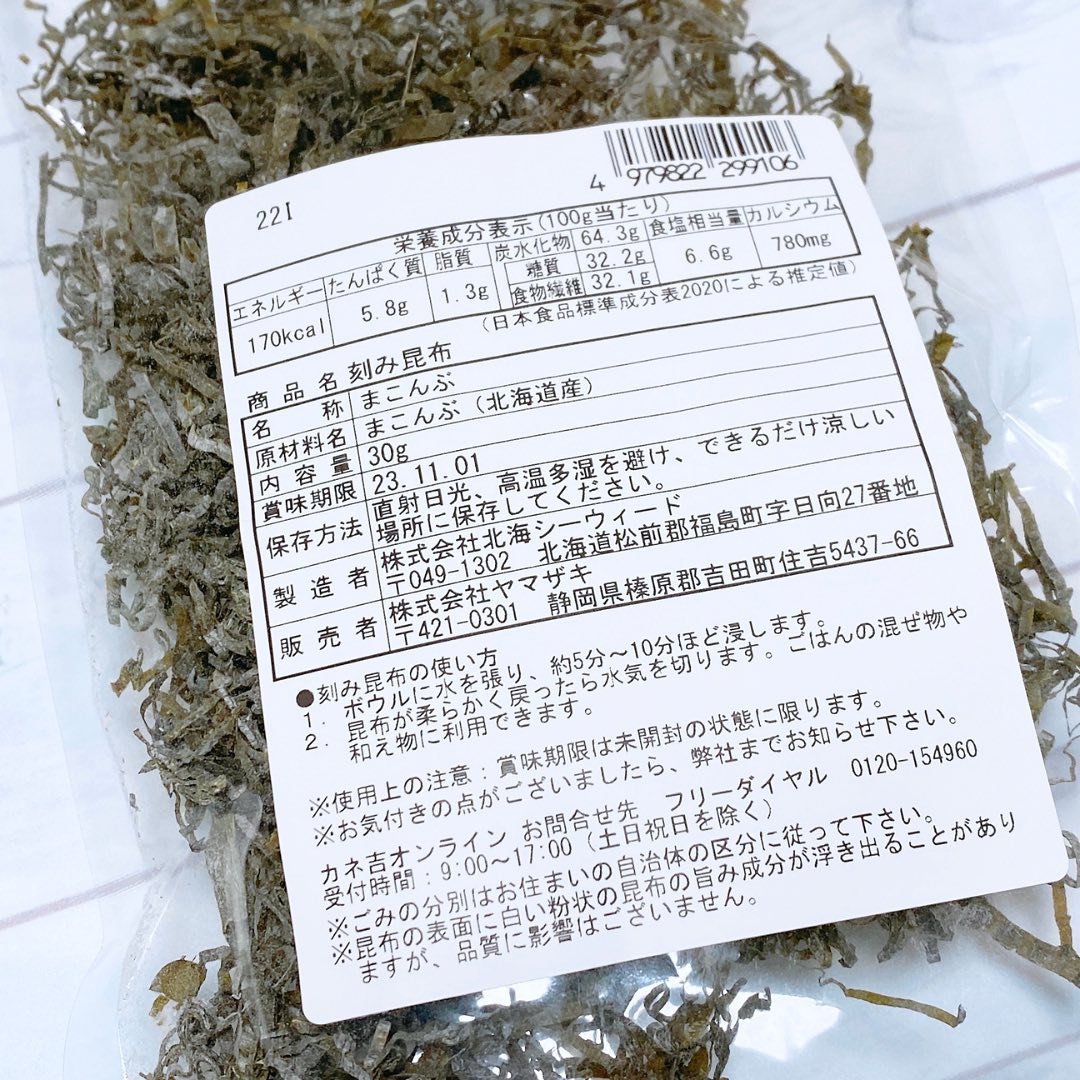 4 979822 299106
22I
栄養成分表示(100g当たり)
エネルギー たんぱく質 脂質 炭水化物 64.3g 食塩相当量 カルシウム
糖質 32.2g
食物繊維 32.1g
170kcal 5.8g 1.3g 6.6g 780mg
(日本食品標準成分表2020による推定値)
商品名 刻み昆布
名称 まこんぶ
原材料名 まこんぶ(北海道産)
内容量 30g
賞味期限 23.11.01
保存方法 直射日光、高温多湿を避け、できるだけ涼しい
場所に保存してください。
製造者 株式会社北海シーウィード
〒049-1302 北海道松前郡福島町字日向27番地
販売者 株式会社ヤマザキ
〒421-0301 静岡県榛原郡吉田町住吉5437-66
●刻み昆布の使い方
1. ボウルに水を張り、約5分～10分ほど浸します。
2. 昆布が柔らかく戻ったら水気を切ります。ごはんの混ぜ物や
和え物に利用できます。
※使用上の注意：賞味期限は未開封の状態に限ります。
※お気付きの点がございましたら、弊社までお知らせ下さい。
カネ吉オンライン お問合せ先 フリーダイヤル 0120-154960
受付時間：9:00～17:00(土日祝日を除く)
※ごみの分別はお住まいの自治体の区分に従って下さい。
※昆布の表面に白い粉状の昆布の旨み成分が浮き出ることがあり
ますが、品質に影響はございません。